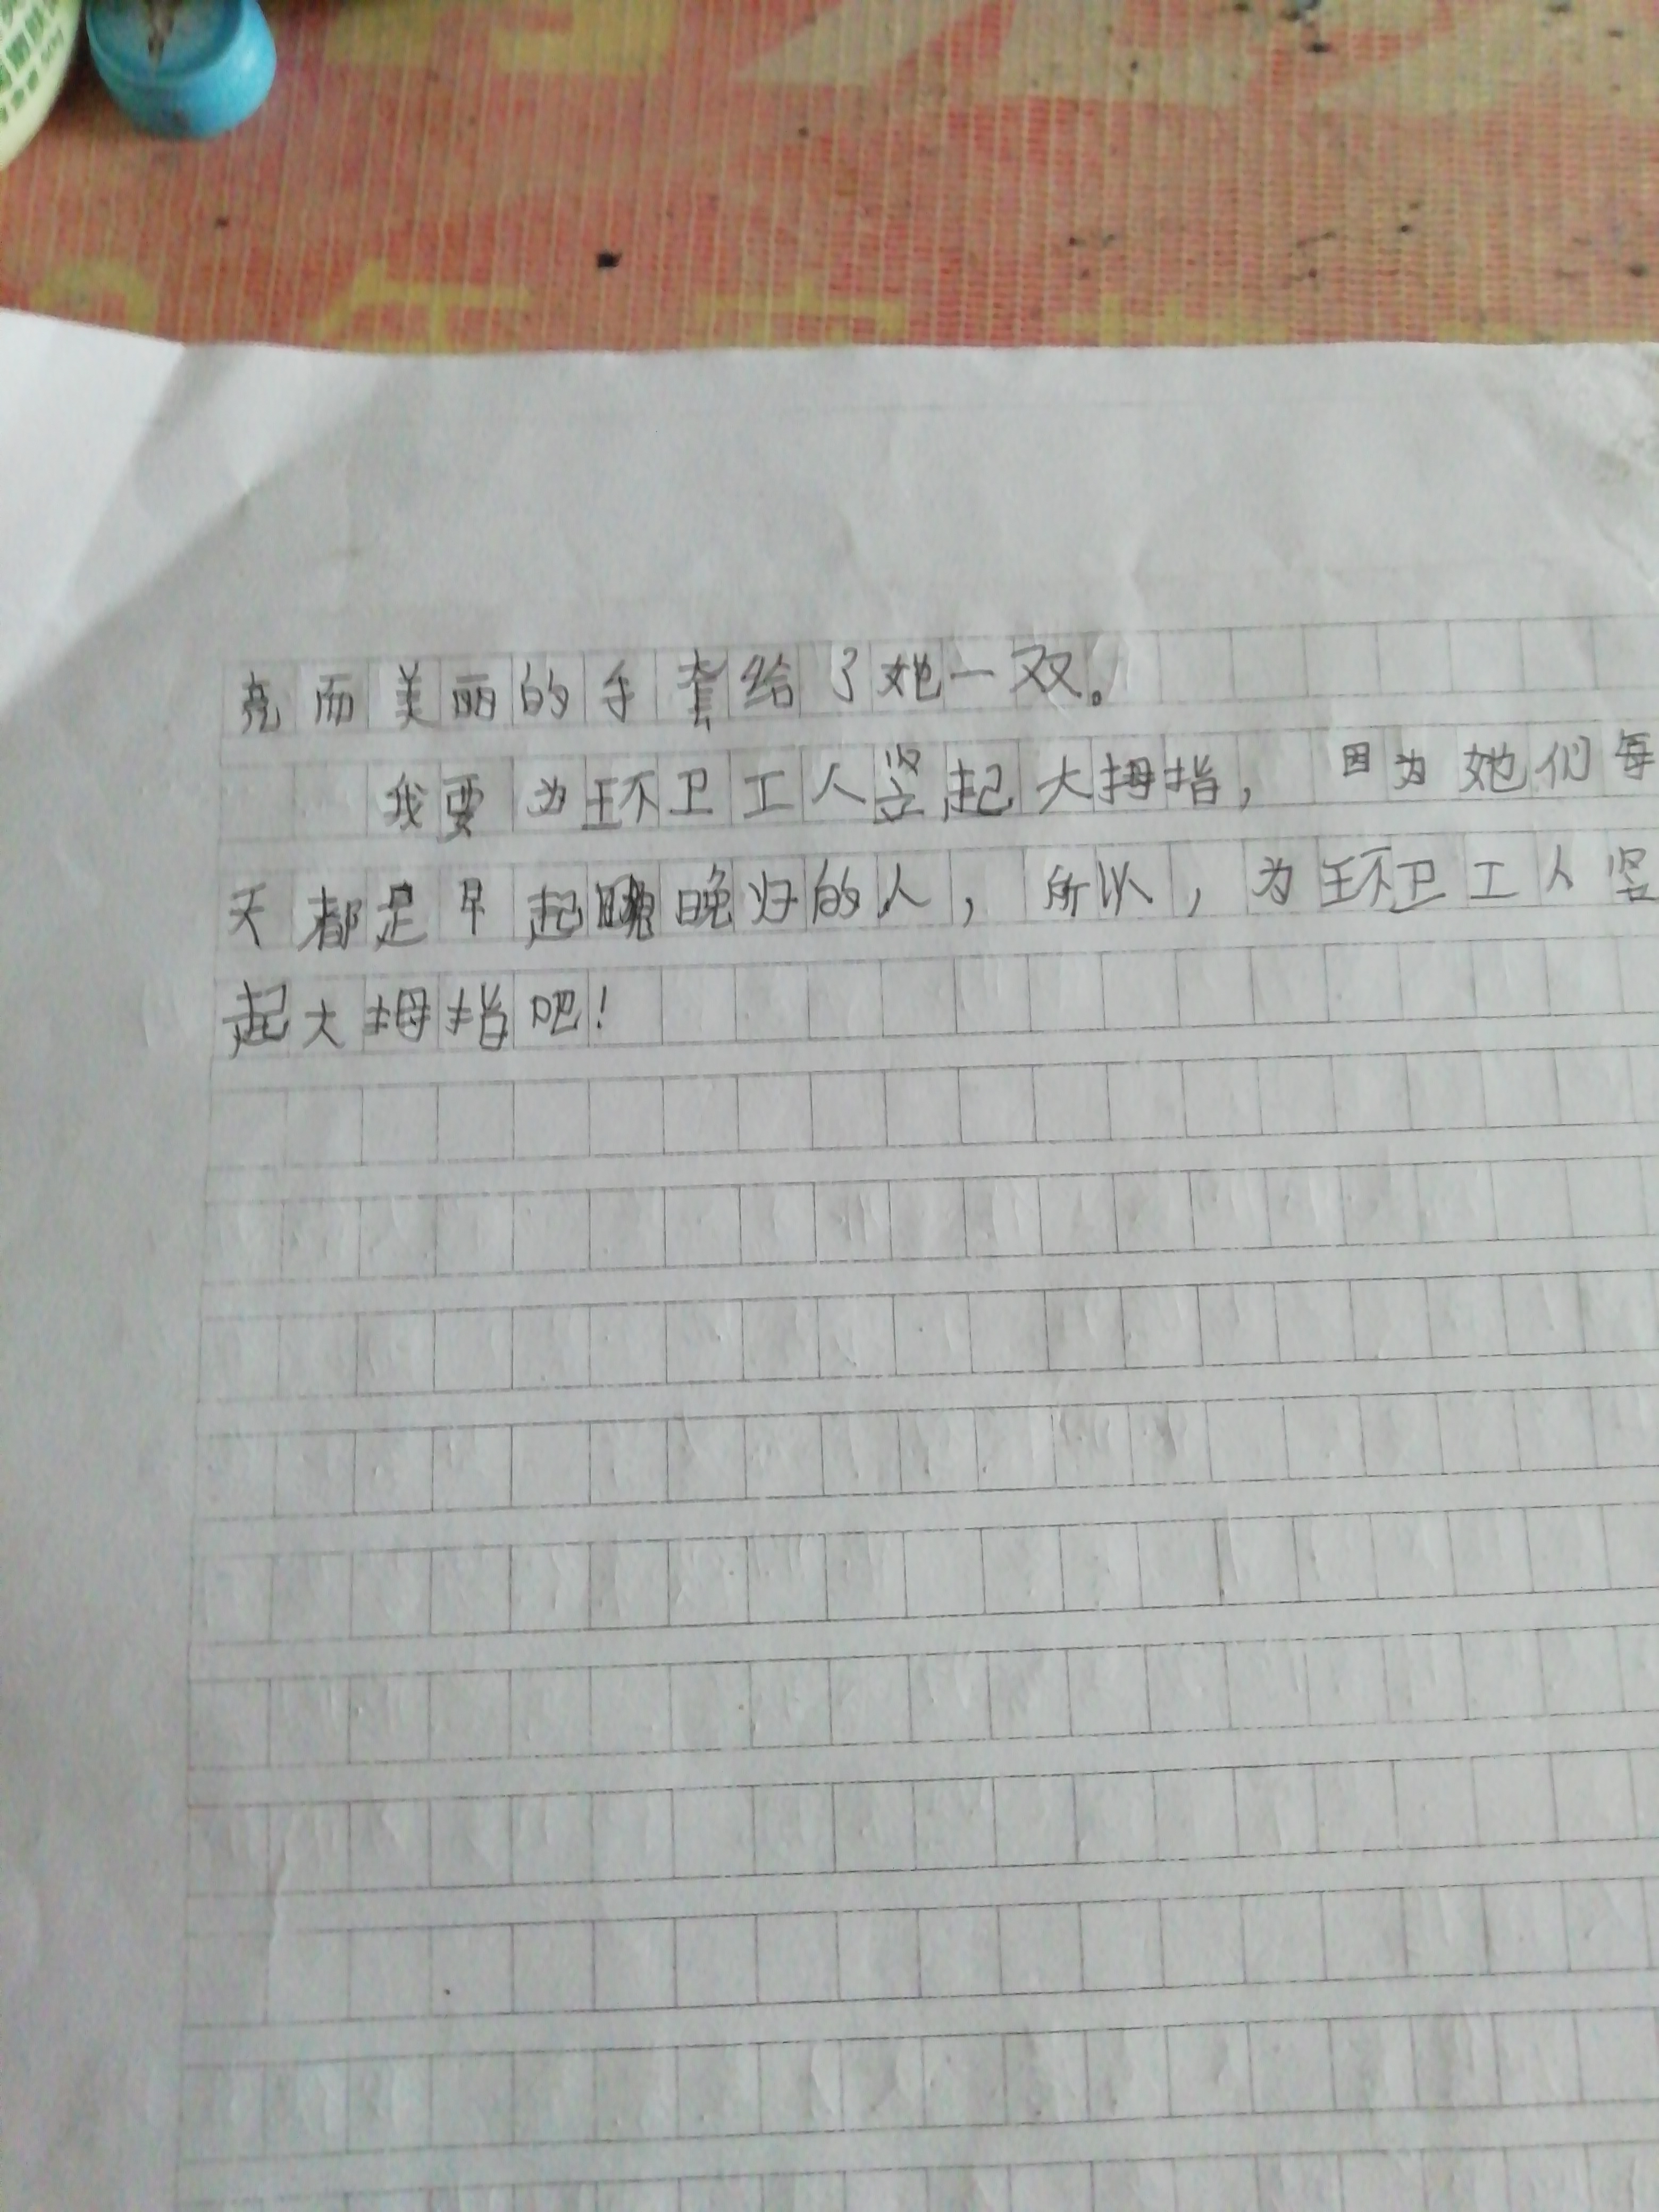 亮而美丽的手套给了她一双。
我要为环卫工人竖起大拇指，因为她们每
天都是早起晚归的人，所以，为环卫工人竖
起大拇指吧！